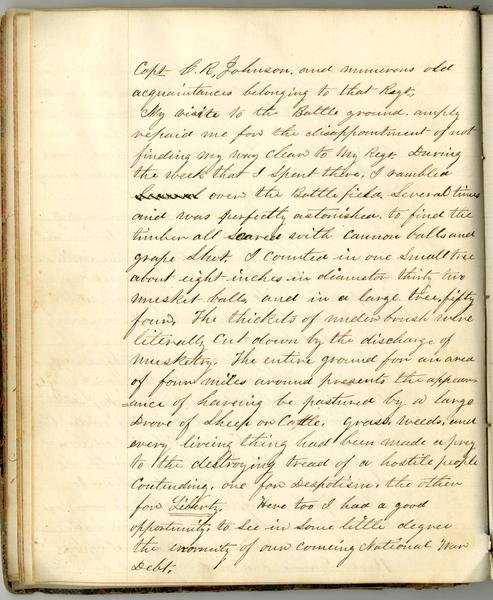 Capt. C. R. Johnson. and numerous old
acquaintances belonging to that Regt,
My visite to the Battle ground. amply
repaid me for the disappointment of not
finding my way clear to My Regt During
the week that I spent there. I rambled
over the Battlefield Several times
and was perfectly astonished. to find the
timber all Scared with Cannon balls and
grape Shot. I counted in one Small tree
about eight inches in diameter thirty two
musket balls and in a large tree, fifty
four, The thickets of under brush were
literally Cut down by the discharge of
musketry. The entire ground for an area
of four miles around presents the appear-
ance of haveing be pastured by a large
Drove of Sheep or Cattle, grass, weeds, and
every liveing thing had been made a prey
to the destroying tread of a hostile people
Contending, one for Despotism. the other
for Liberty. Here too I had a good
opportunity. to See in Some little degree
the enormity of our comeing National War
Debt.